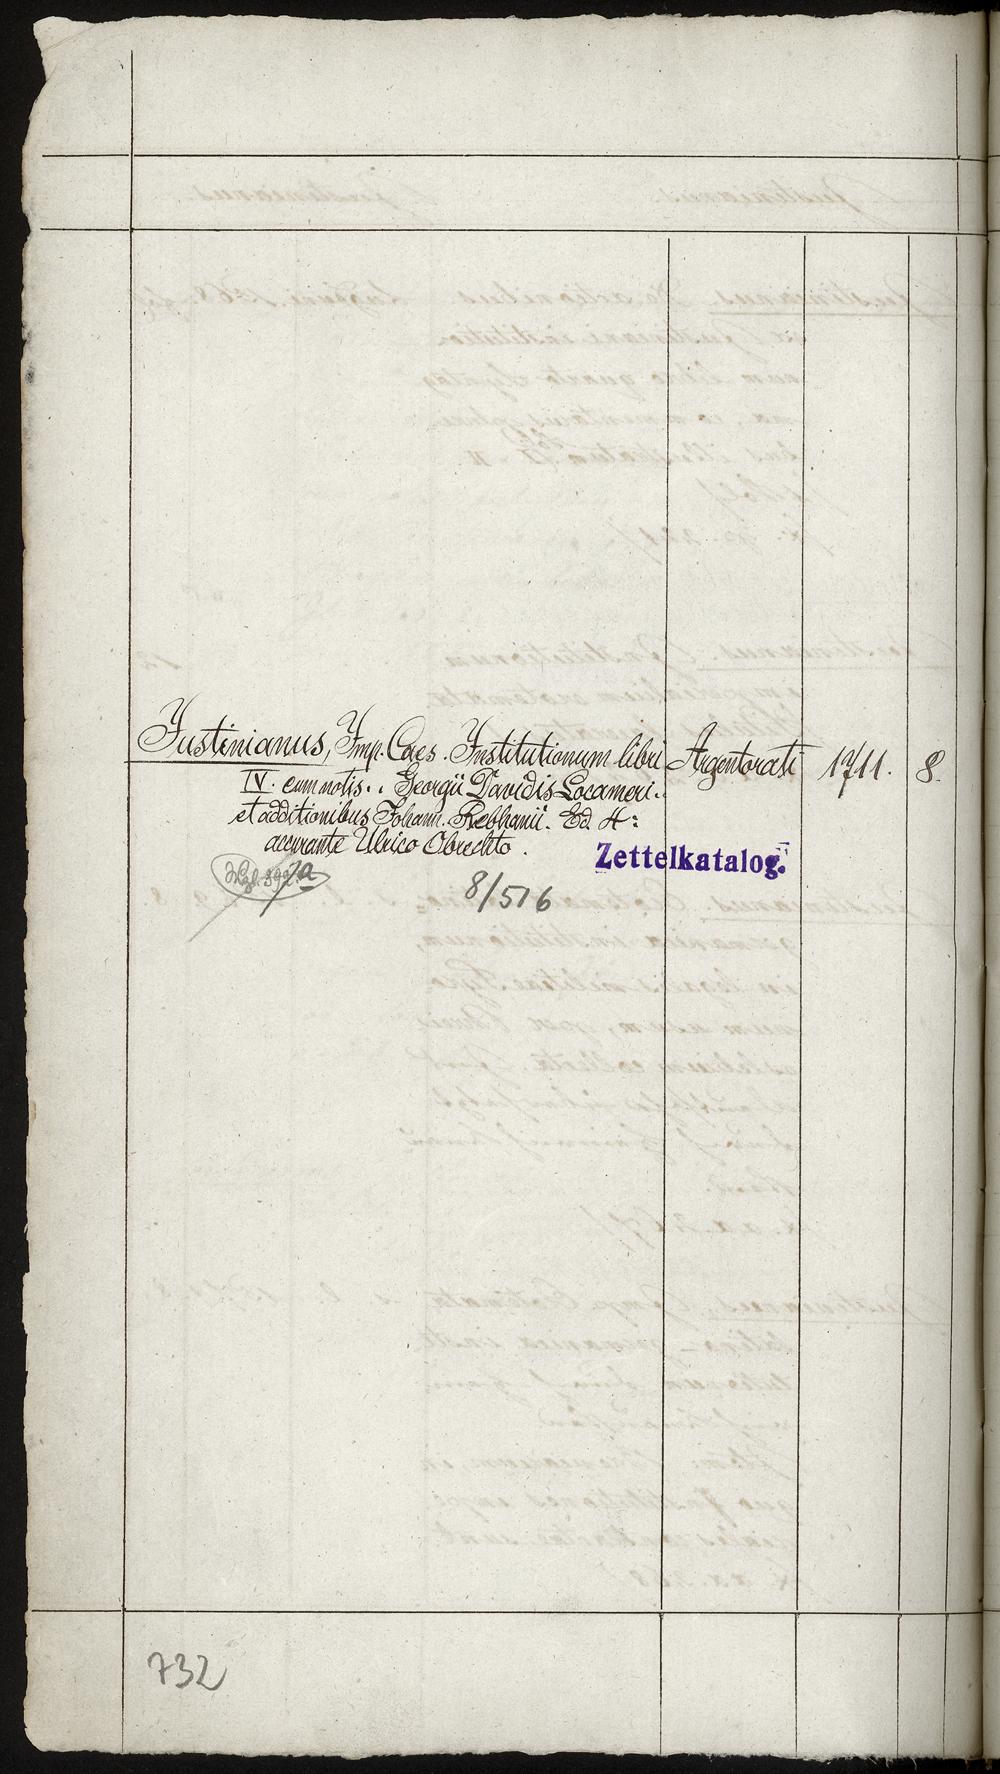 Justinianus, Imp. Caes. Institutionum libri Argentorati 1711. 8.
IV. cum notis.. Georgii Davidis Locameri..
et additionibus Johann. Rebhanii. Ed 4:
accurante Ulrico Obrechto.
Zettelkatalog.
8/516
732